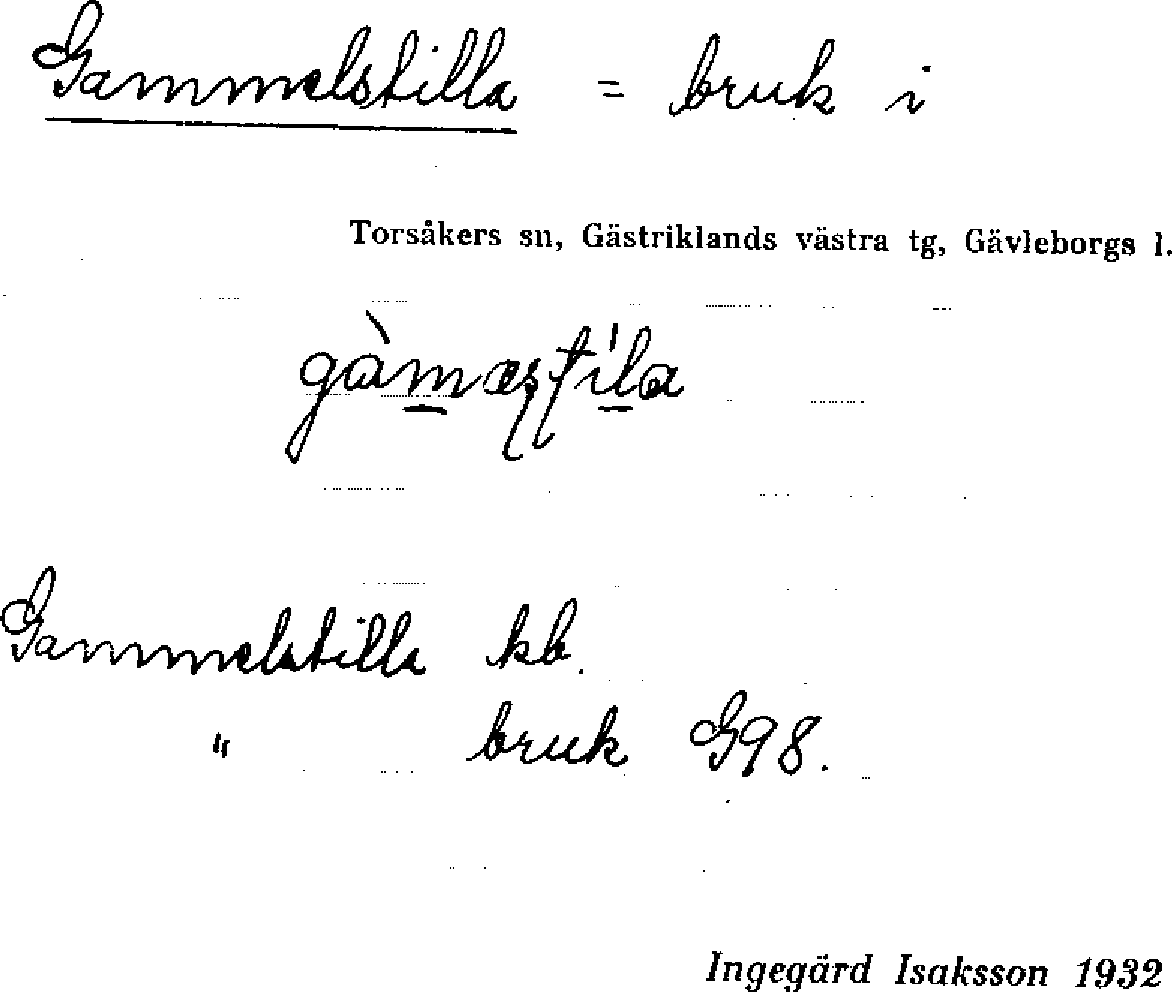 Gammelstilla = bruk i
Torsåkers sn, Gästriklands västra tg, Gävleborgs l.
Gammelstilla kb.
" bruk G98.
Ingegärd Isaksson 1932